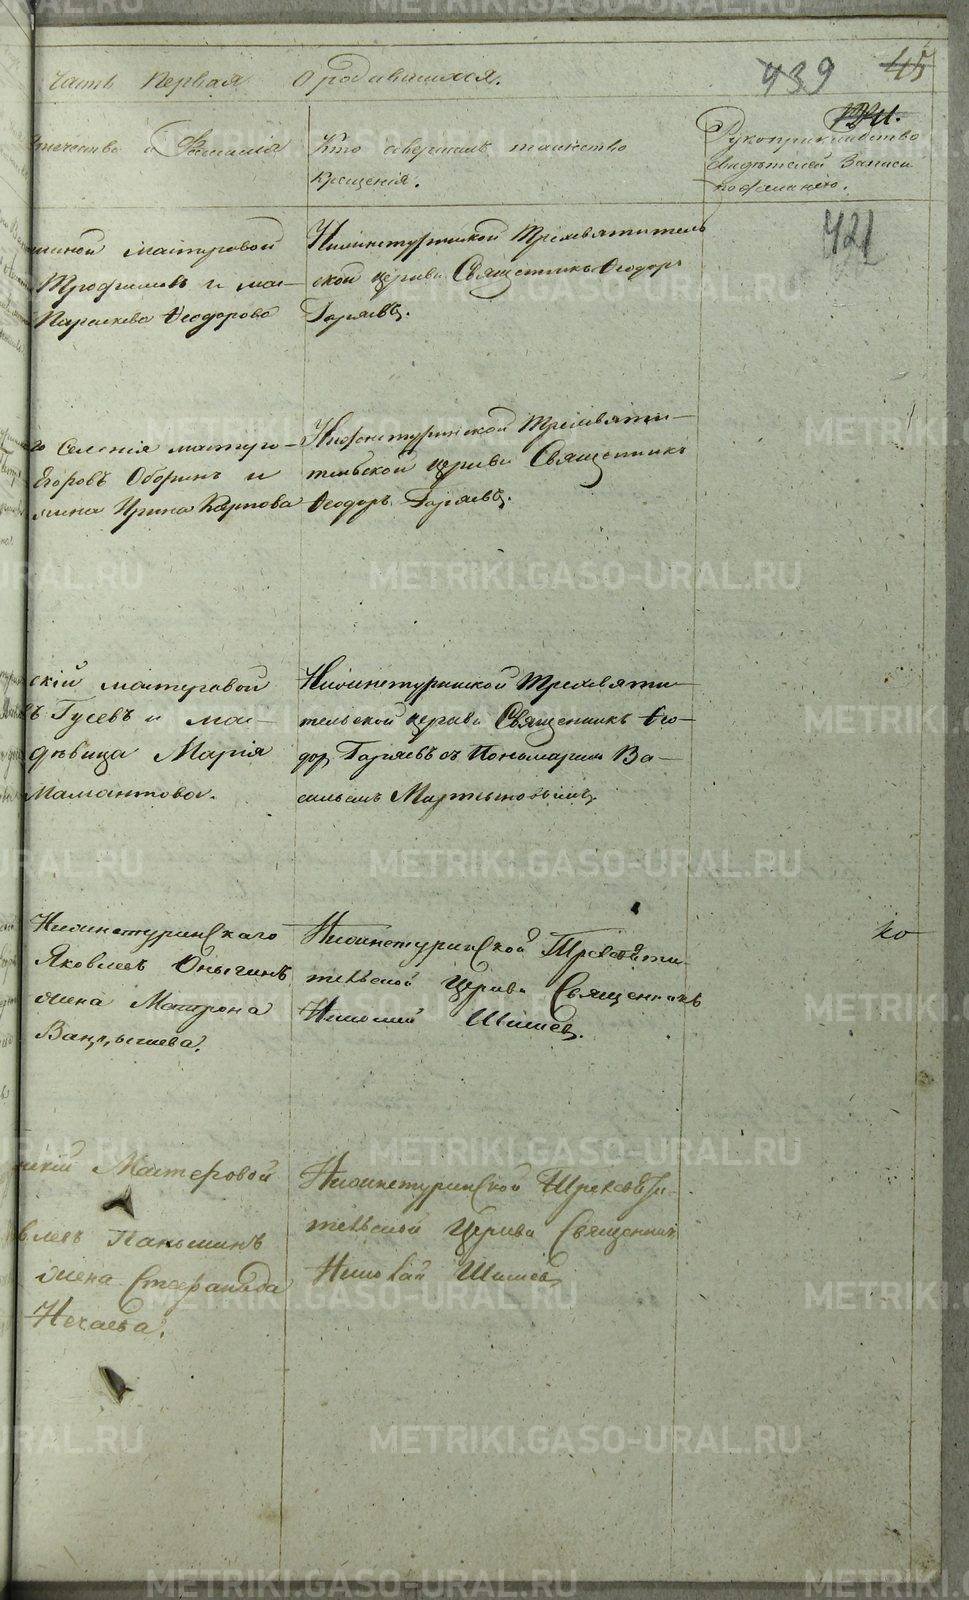 Часть Первая О родившихся.
439 45
Отечество и Фамилія
Кто совершалъ таинство
крещенія.
Рукоприкладство
свидѣтелей записи
по желанію.
421
мастеровой
Трофимовъ и
Параскева Ѳеодорова
Нижнетуринской Трехсвятитель
ской церкви Священникъ Ѳеодоръ
Гаряевъ.
го селенія мастеро-
Егоровъ Оборинъ и
Ирина Карпова
Нижнетуринской Трехсвяти-
тельской церкви Священникъ
Ѳеодоръ Гаряевъ.
скій мастеровой
въ Гусевъ и
дѣвица Марія
Мамонтова.
Нижнетуринской Трехсвяти-
тельской церкви Священникъ Ѳео-
доръ Гаряевъ съ Пономаремъ Ва-
сильемъ Мартыновымъ.
Нижнетуринскаго
Яковлевъ
жена Матрона
Нижнетуринской Трехсвяти-
тельской Церкви Священникъ
Николай Шишевъ
ко
скій Мастеровой
влевъ Паньшинъ
жена Стефанида
Нечаева.
Нижнетуринской Трехсвяти-
тельской Церкви Священникъ
Николай Шишевъ
METRIKI.GASO-URAL.RU